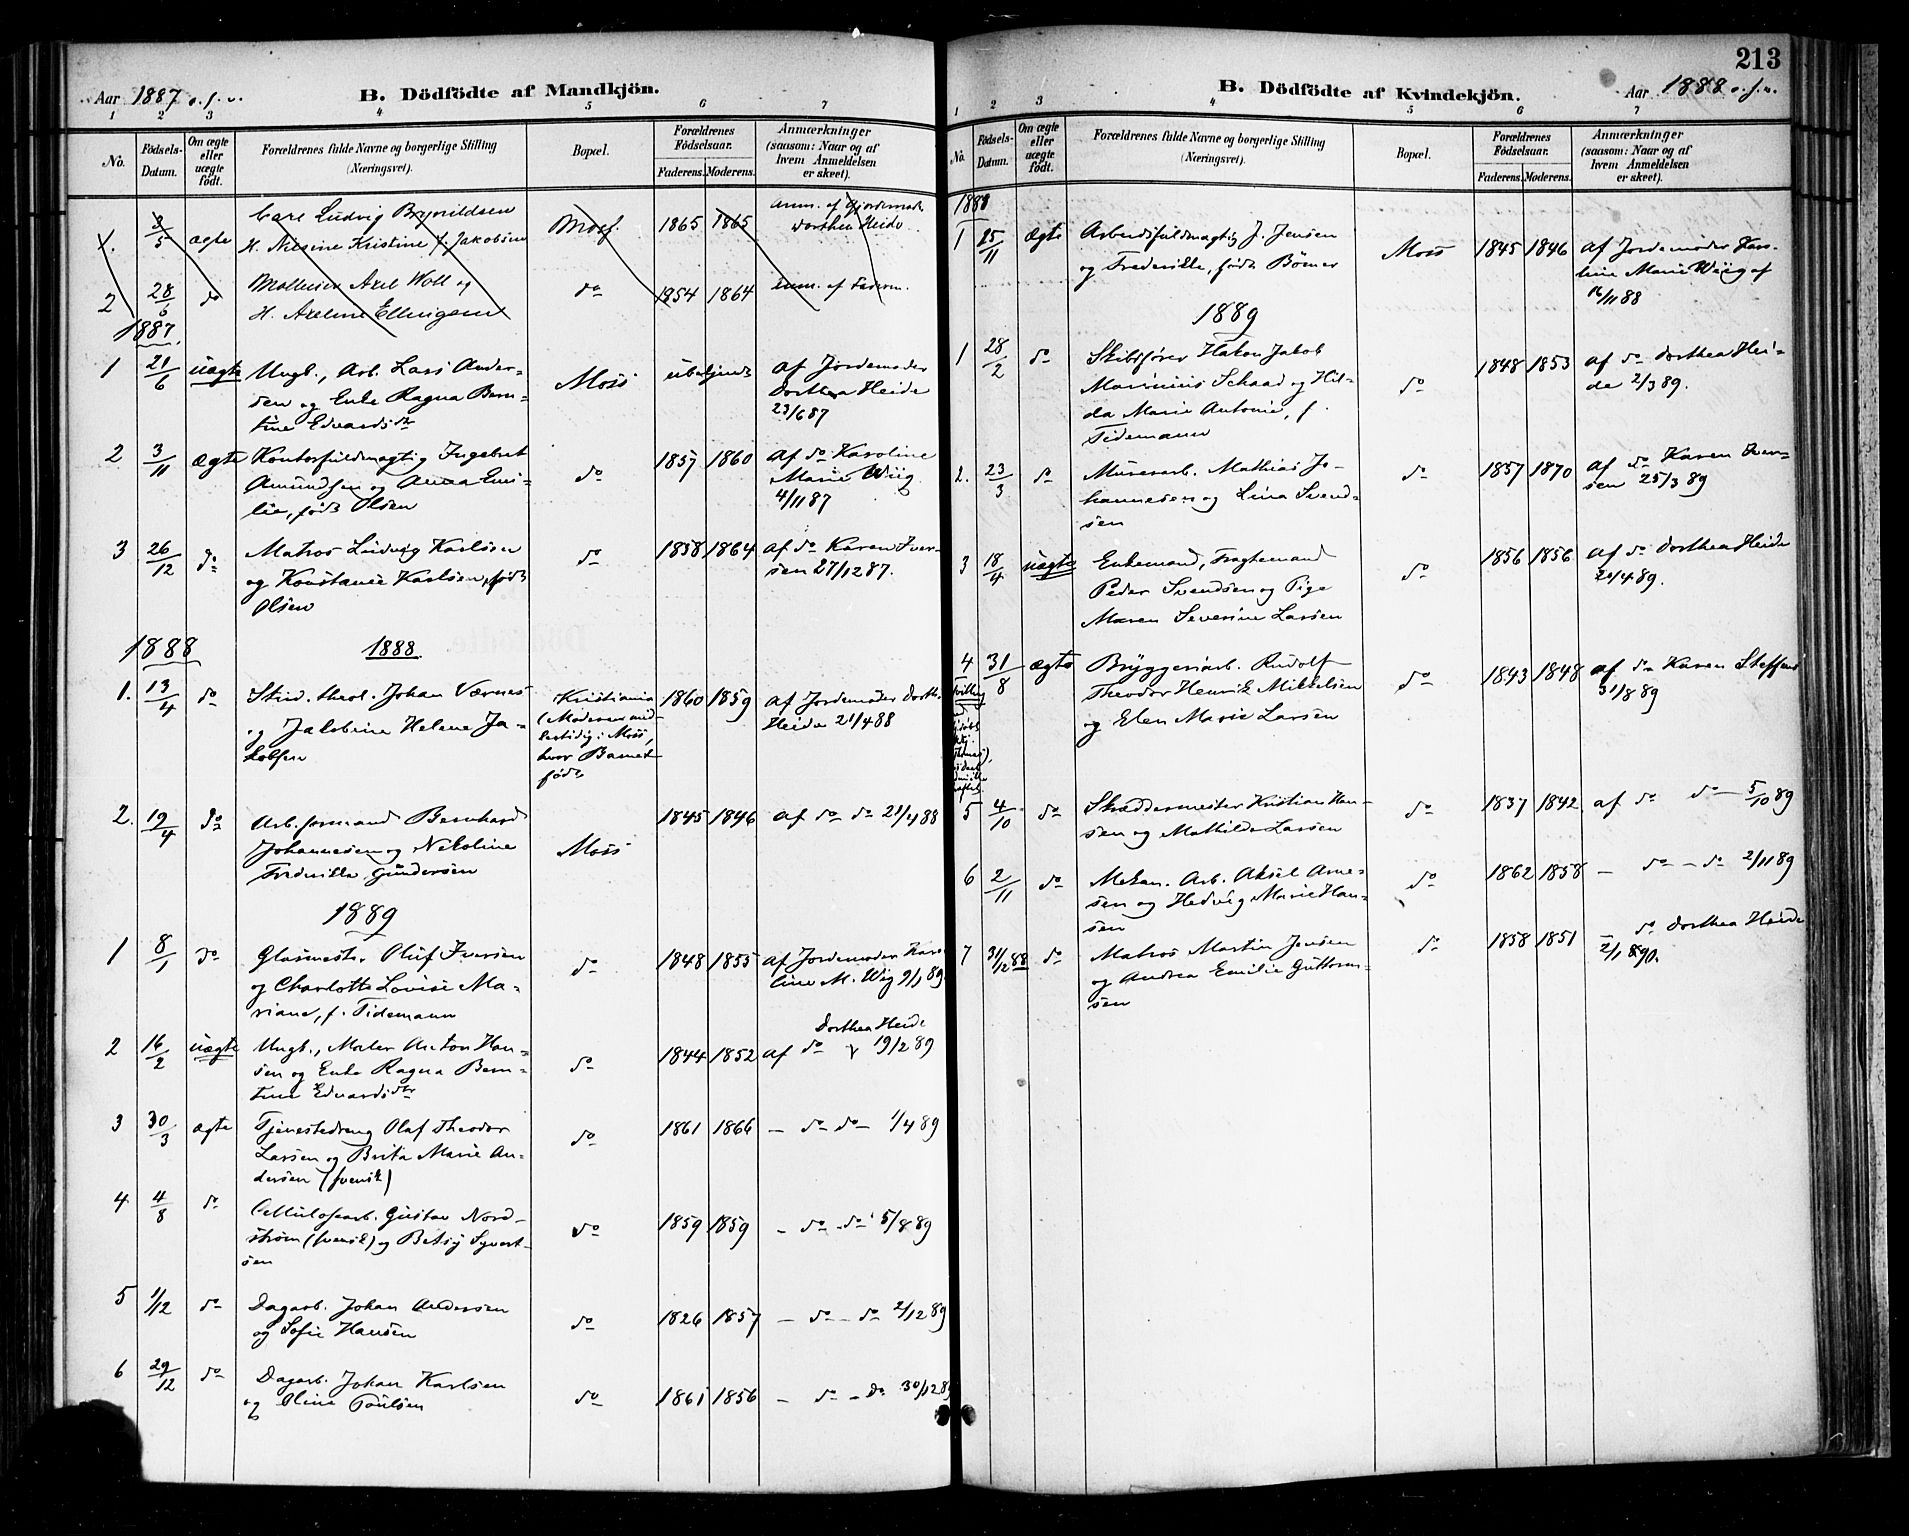 Aar 1887 o.s.v.
B. Dödfödte af Mandkjön.
1 2 3 4 5 6 7
No.
Födsels-Datum.
Om ægte eller uægte födt.
Forældrenes fulde Navne og borgerlige Stilling (Næringsvei).
Bopæl.
Forældrenes Födselsaar.
Faderens. Moderens.
Anmærkninger (saasom: Naar og af hvem Anmeldelsen er skeet).
1. 3/5 ægte Carl Ludvig Brynildsen Moss. 1865 1865 Anm. af Gjordemoder
H. Nilsine Kristine f. Jakobsen Dorthea Heide
2 28/6 do Axel Woll og do 1854 1864 anm. af Faderen.
H. Axeline Ellingsen
1887.
1 21/6 uægte Ungk., Arb. Lars Ander- Moss ubekjendt af Jordemoder
sen og Enke Ragna Bern- Dorthea Heide
tine Edvardsdr 23/6 87
2 3/11 ægte Kontorfuldmægtig Ingebret do 1857 1860 af do Karoline
Amundsen og Anna Emi- Marie Wiig
lie, født Olsen 4/11 87
3 26/12 do Matros Ludvig Karlsen do 1858 1864 af do Karen Iver-
og Konstance Karlsen, født sen 27/12 87.
Olsen
1888 1888.
1. 13/4 do Stud. theol. Johan Værnes Kristiania 1860 1859 af Jordemoder Dorth.
og Jakobine Helene Ja- (Moderen mid- Heide 21/4 88
kobsen lertidig i Moss,
hvor Barnet
født
2. 19/4 do Arb.formand Bernhard 1845 1846 af do do 21/4 88
Johannesen og Nikoline Moss
Fredrikke Gundersen
1889
1 8/1 do Glasmester Oluf Iversen do 1848 1855 af Jordemoder Karo-
og Charlotte Lovise Ma- line M. Wiig 9/1 89.
riane, f. Tidemann
2 16/2 uægte Ungk., Maler Anton Han- do 1844 1852 af do Dorthea Heide 19/2 89
sen og Enke Ragna Bern-
tine Edvardsdtr
3 30/3 ægte Tjenestedreng Olaf Theodor do 1861 1866 — do do — 1/4 89
Larsen og Brita Marie An-
dersen (svensk)
4 4/8 do Cellulosearb. Gustav Nord- do 1859 1859 — do do 5/8 89
strøm (svensk) og Betsy Syvert-
sen
5 1/12 do Dagarb. Johan Andersen do 1826 1857 — do — do 2/12 89
og Sofie Hansen
6 29/12 do Dagarb. Johan Karlsen do 1861 1856 — do — do 30/12 89
og Oline Poulsen
213
B. Dödfödte af Kvindekjön.
Aar 1888 o.s.v.
1 2 3 4 5 6 7
No.
Födsels-Datum.
Om ægte eller uægte födt.
Forældrenes fulde Navne og borgerlige Stilling (Næringsvei).
Bopæl.
Forældrenes Födselsaar.
Faderens. Moderens.
Anmærkninger (saasom: Naar og af hvem Anmeldelsen er skeet).
1888
1 15/11 ægte Arbeidsfuldmægtig J. Jensen Moss 1845 1846 af Jordemoder Karo-
og Fredrikke, født Bömer line Marie Wiig af
16/11 88
1889
1 28/2 do Skibsfører Hakon Jakob do 1848 1853 af do Dorthea Hei-
Marinius Schaad og Hil- de 2/3 89.
da Marie Antonie, f.
Tidemann
2. 23/3 do Murerarb. Mathias Jo- do 1857 1870 af do Karen Iver-
hannesen og Lina Svend- sen 25/3 89
sen
3 18/4 uægte Enkemand, Fragtemand do 1856 1856 af do Dorthea Heide
Peder Svendsen og Pige 20/4 89.
Maren Severine Larsen
4 31/8 ægte Bryggeriarb. Rudolf do 1843 1848 af do Karen Steffens
Theodor Henrik Mikkelsen 31/8 89
og Elen Marie Larsen
5 4/10 do Skræddermester Kristian Han- do 1837 1842 af do do — 5/10 89
sen og Mathilde Larsen
6 2/11 do Mekan. Arb. Aksel Arne- do 1862 1858 — do — do 2/11 89
sen og Hedvig Marie Han-
sen
7 31/12 88 do Matros Martin Jensen do 1858 1851 — do Dorthea Heide
og Andrea Emilie Guttorm- 2/1 90.
sen